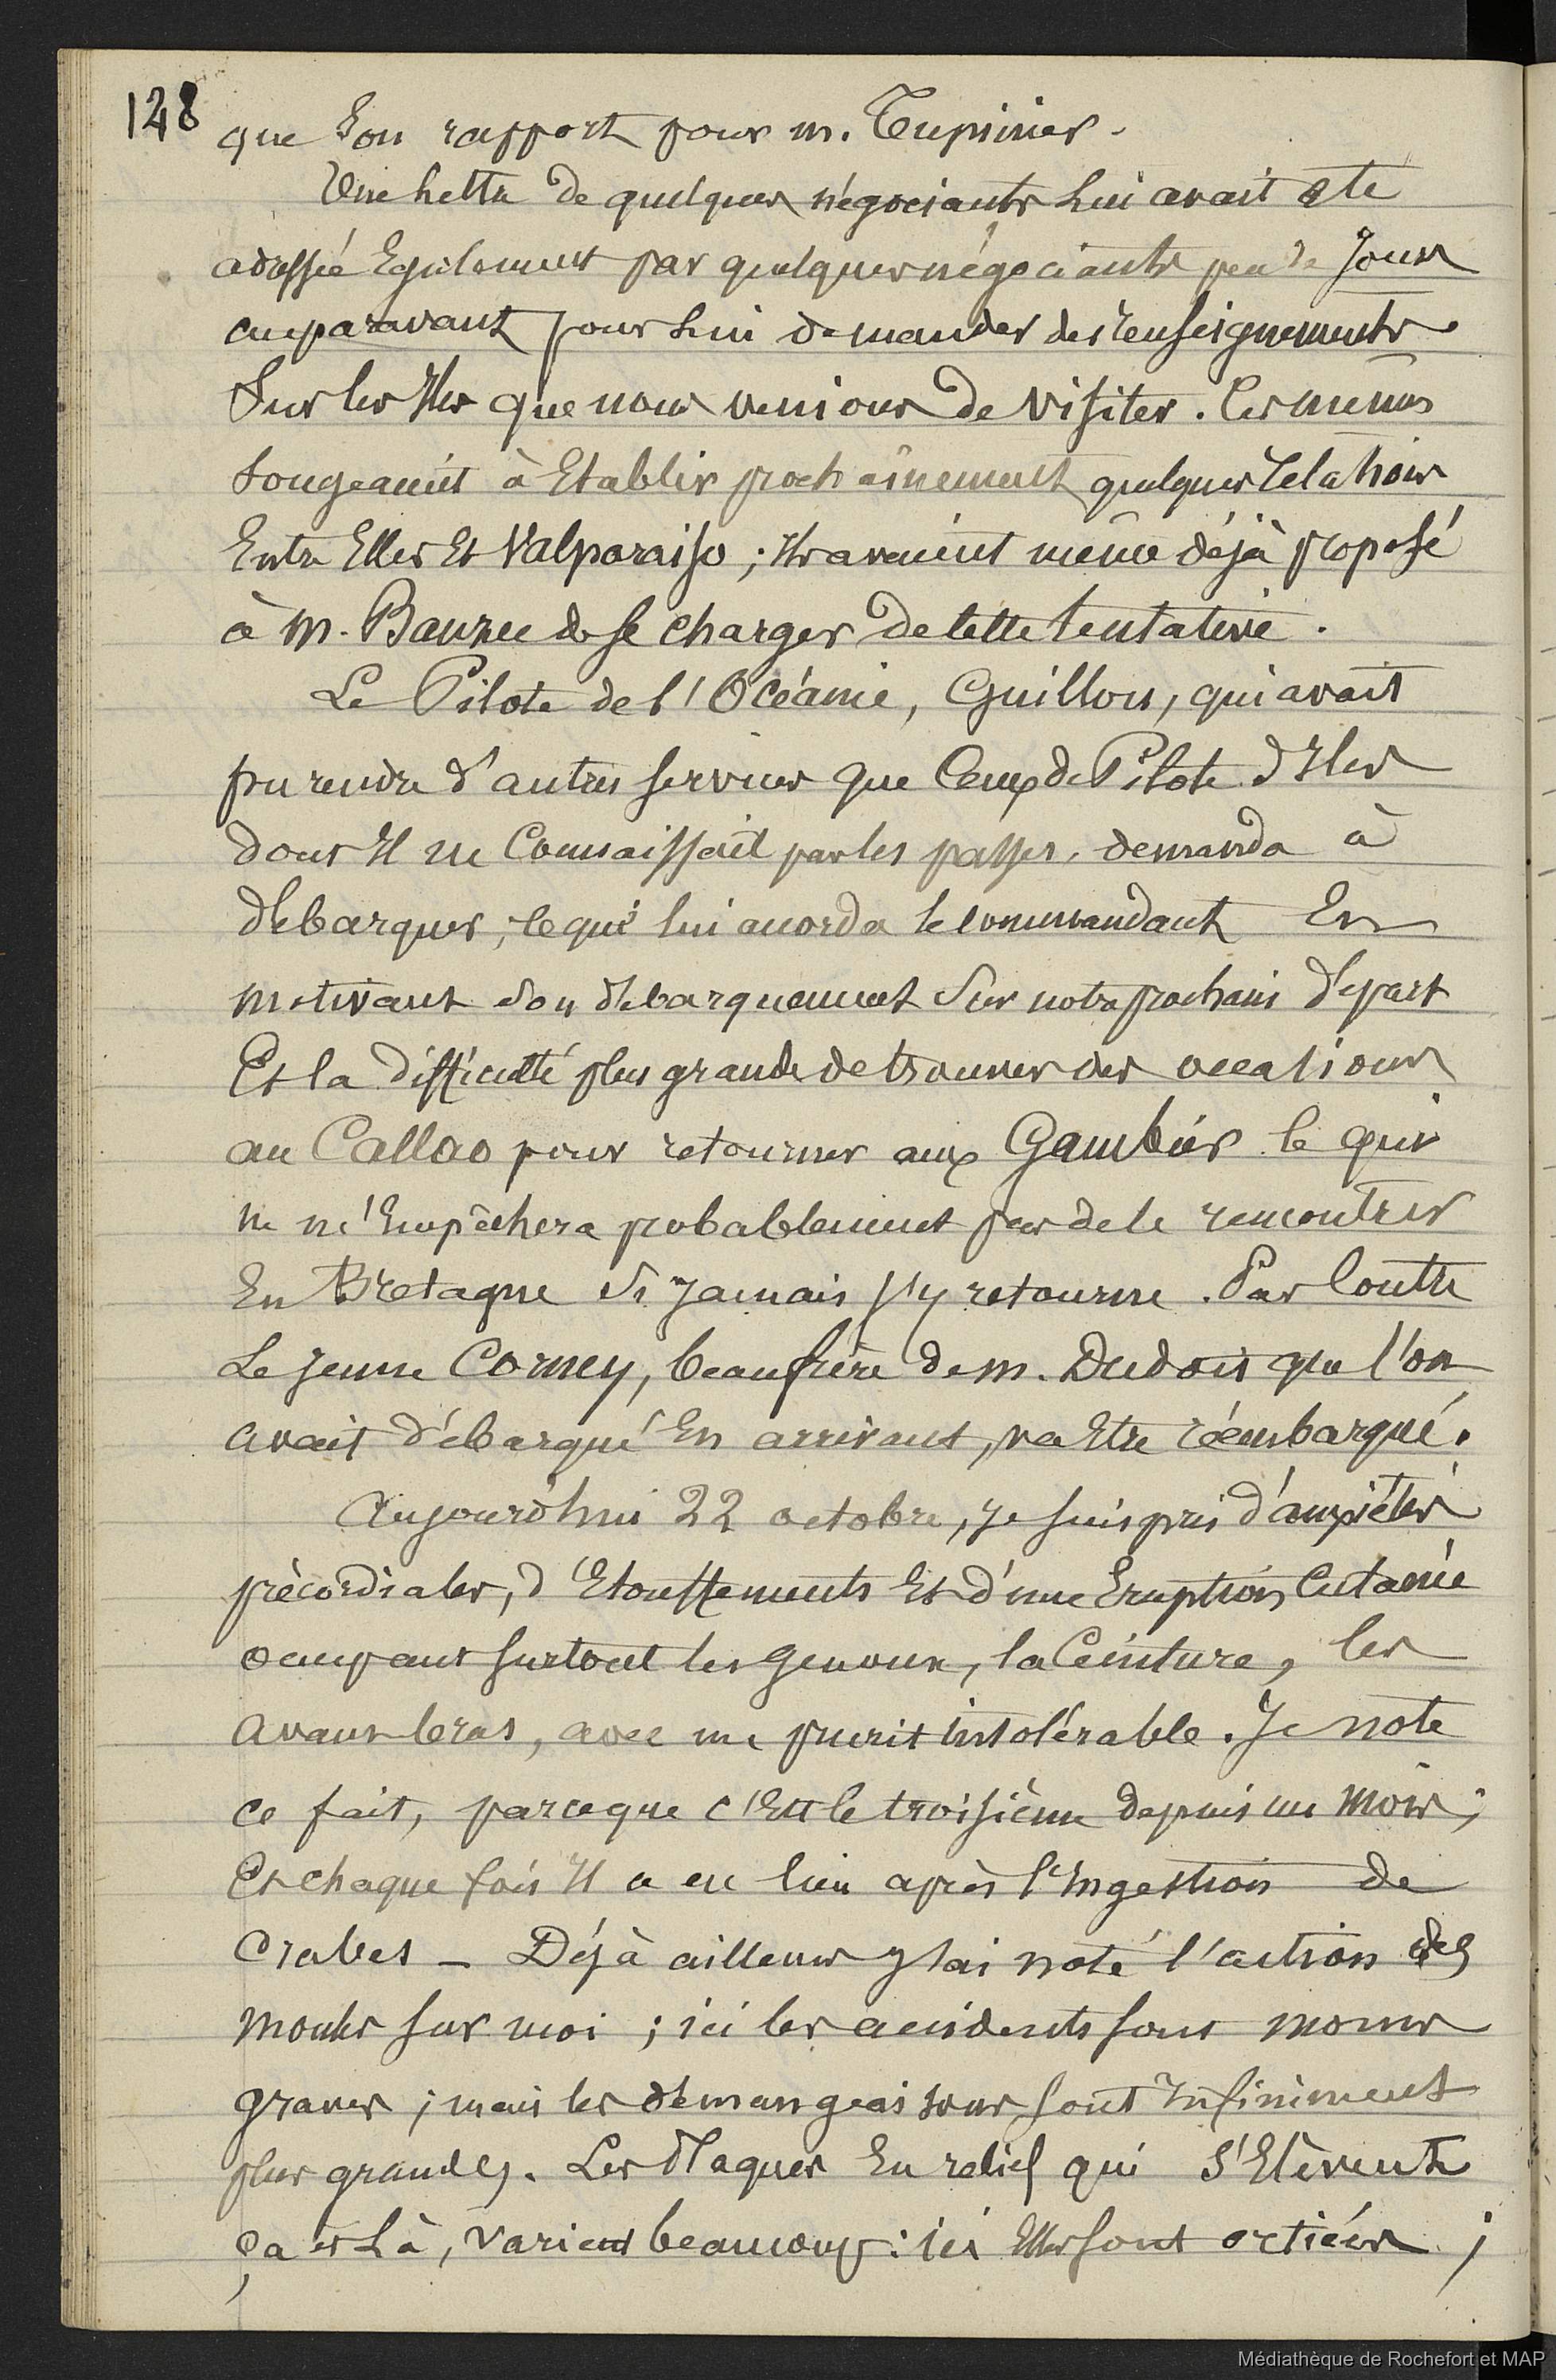 128
que son rapport pour m. Tupinier.
Une lettre de quelques négociants lui avait été
adressée Egalement par quelques négociants peu de Jours
auparavant pour lui demander des renseignements
Sur les Iles que nous venions de visiter. Ces mêmes
songeaient à Etablir prochainement quelques relations
Entre Elles Et Valparaiso ; Ils avaient même déjà proposé
à m. Bauzee de se charger de cette tentative.
Le Pilote de l'Océanie, Guillou, qui avait
pu rendre d'autres services que Ceux de Pilote d'Iles
dont Il ne Connaissait pas les passes, demanda à
débarquer, ce qui lui accorda le commandant En
motivant son débarquement Sur notre prochain départ
Et la difficulté plus grande de trouver des occasions
au Callao pour retourner aux Gambier ce qui
ne m'Empêchera probablement pas de le rencontrer
En Bretagne si Jamais j'y retourne. Par Contre
Le jeune Corney, beaufrère de m. Dudoit que l'on
avait débarqué En arrivant, va Etre réembarqué.
Aujourd'hui 22 octobre, je suis pris d'anxiétés
précordiales, d'Etouffements Et d'une Eruption Cutanée
occupant surtout les genoux, la Ceinture, les
avant bras, avec un prurit intolérable. Je note
ce fait, parceque c'Est le troisième depuis un mois ;
Et chaque fois Il a eu lieu après l'Ingestion de
Crabes - Déjà ailleurs j'ai noté l'action des
moules sur moi ; ici les accidents sont moins
graves ; mais les démangeaisons sont Infiniment
plus grandes. Les Plaques En relief qui S'Elèvent
ça et là, varient beaucoup : ici Elles sont ortiées ;
Médiathèque de Rochefort et MAP